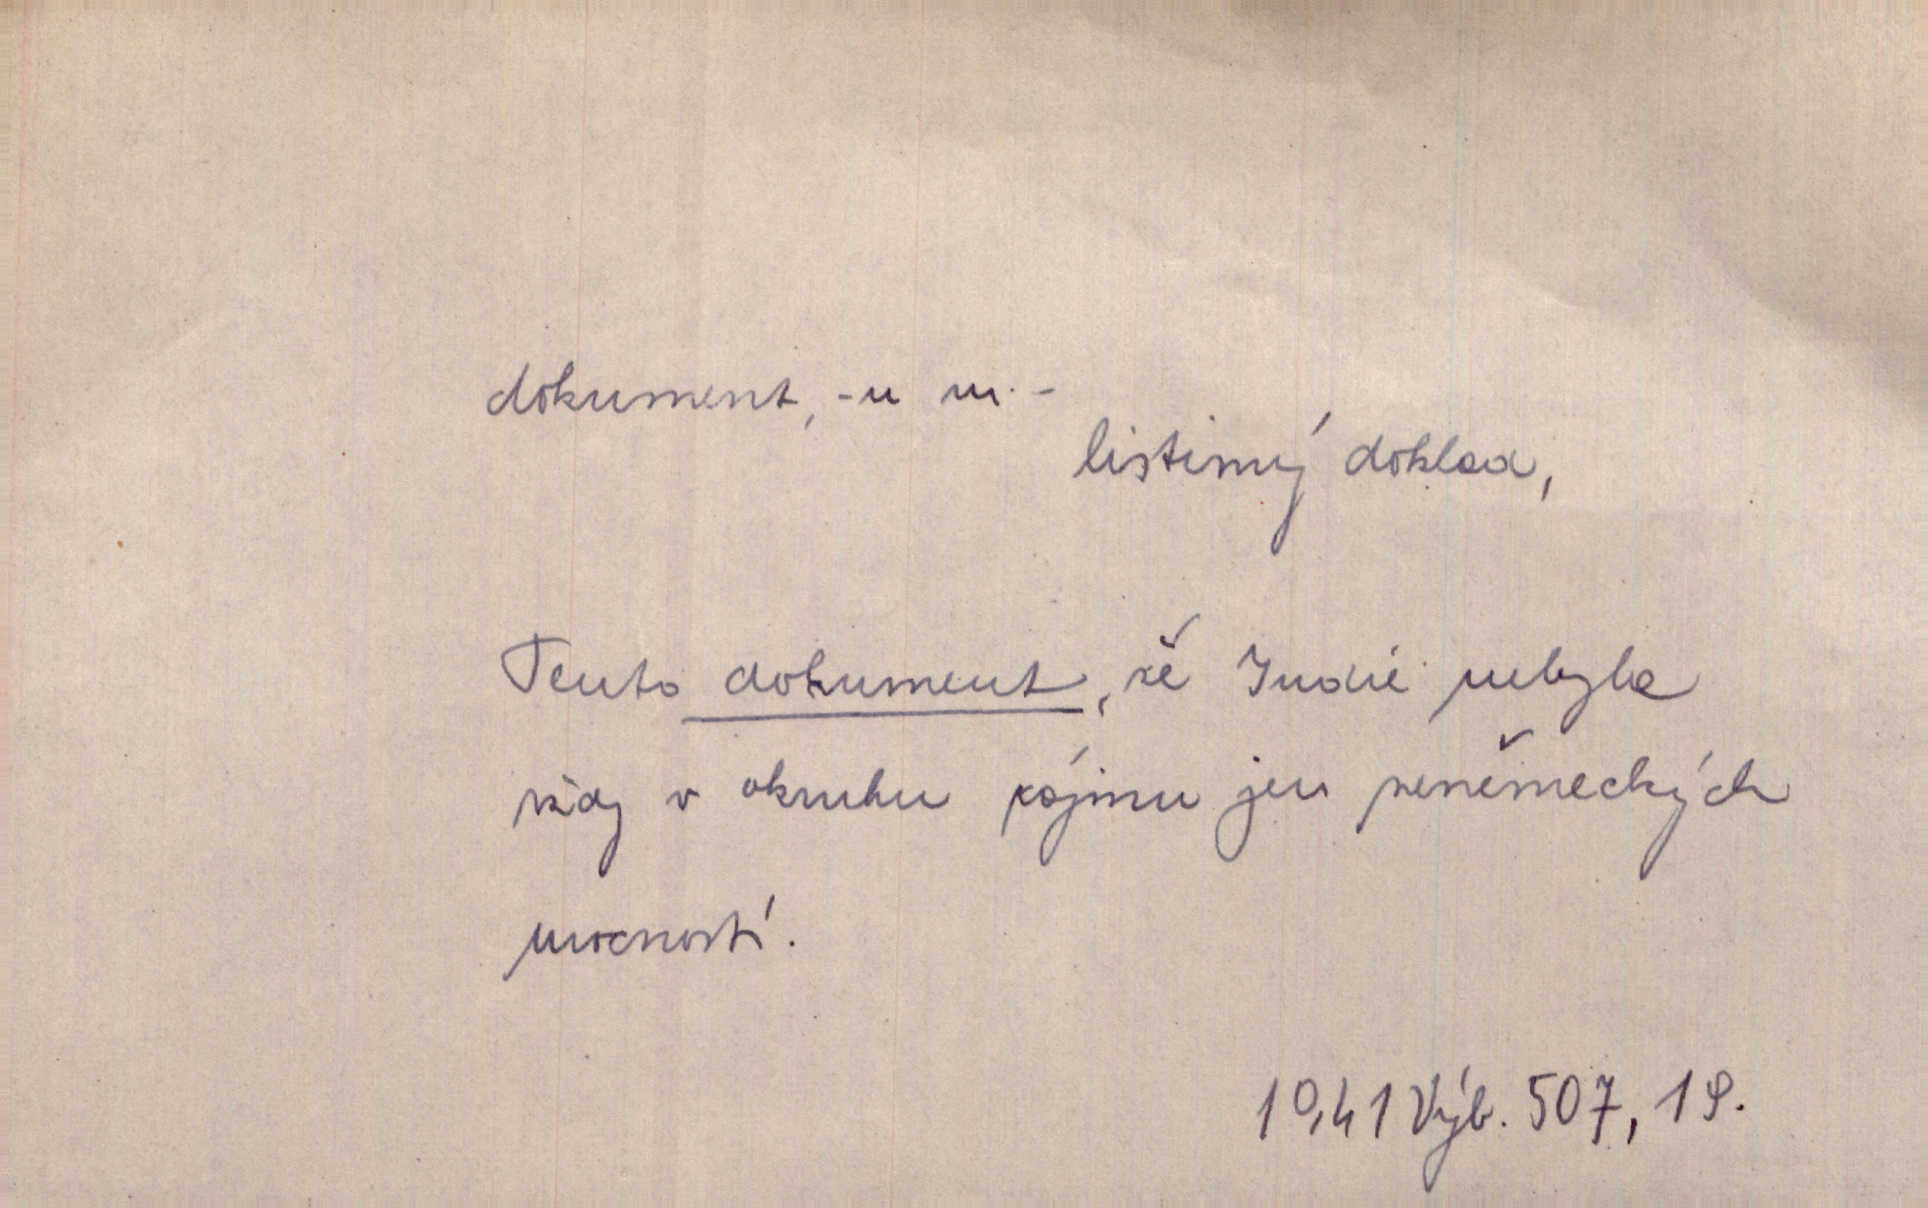 dokument, -u m. -
listinný doklad,
Tento dokument, že Indie nebyla
vždy v okruhu zájmu jen neněmeckých
mocností.
1941 Výb. 507, 19.